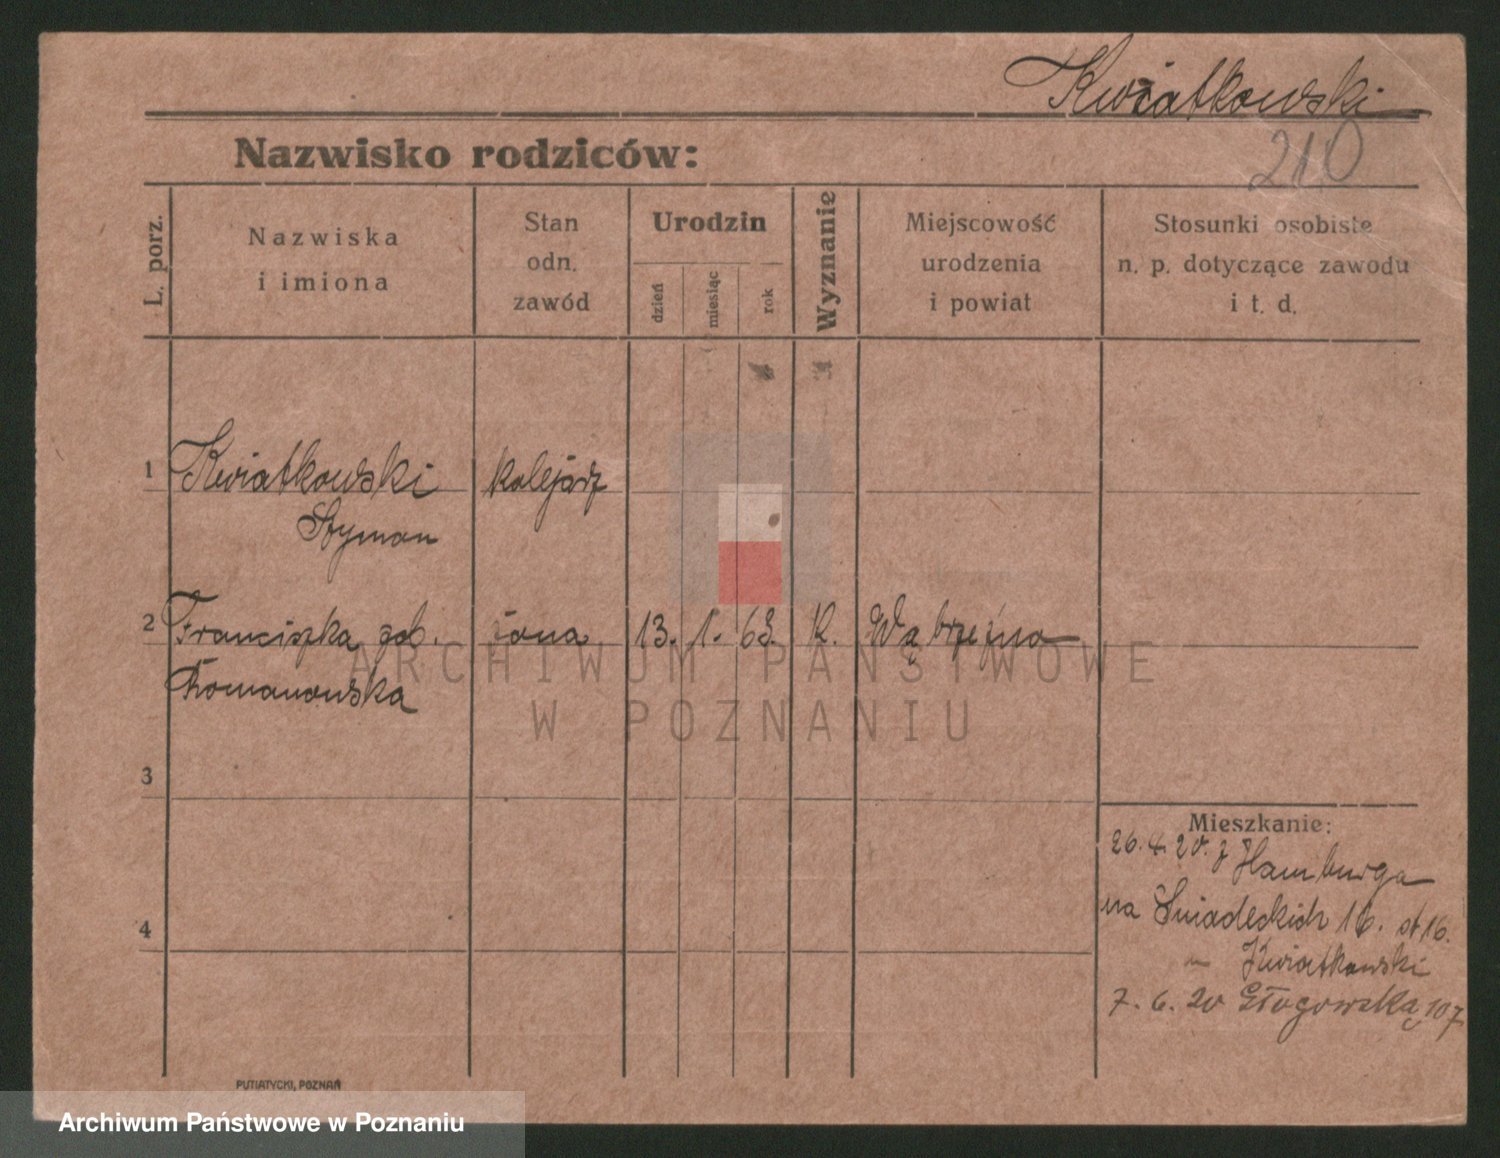 Kwiatkowski
210
Nazwisko rodziców:
L. porz.
Nazwiska
i imiona
Stan
odn.
zawód
Urodzin
dzień
miesiąc
rok
Wyznanie
Miejscowość
urodzenia
i powiat
Stosunki osobiste
n. p. dotyczące zawodu
i t. d.
1 Kwiatkowski kolejarz
Szyman
2 Franciszka zob. żona 13. 1. 63. K. Wąbrzeźno
Romanowska
3
4
Mieszkanie:
26.4.20. z Hamburga
na Śniadeckich 16. st 16.
Kwiatkowski
7. 6. 20 Głogowską 107
PUTIATYCKI, POZNAŃ
ARCHIWUM PAŃSTWOWE
W POZNANIU
Archiwum Państwowe w Poznaniu